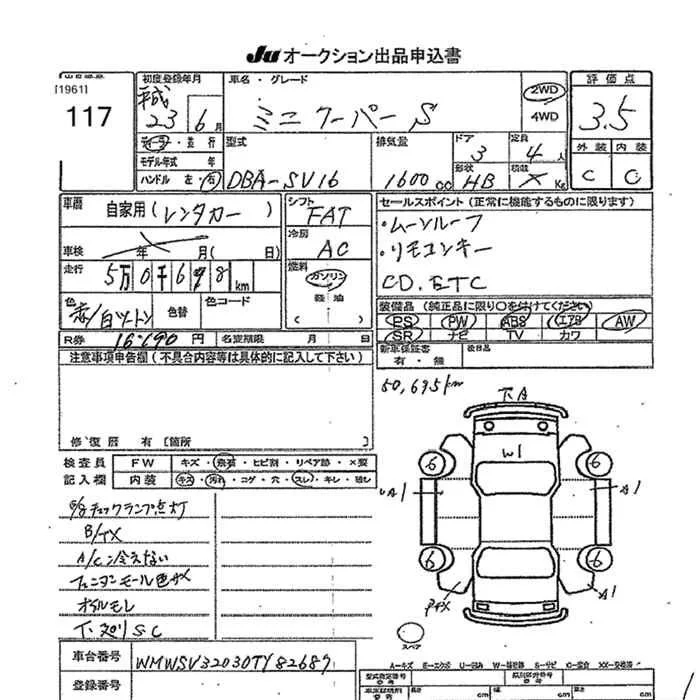 Ju オークション出品申込書
[1961]
117
初度登録年月
平成 23 6月
車名・グレード
ミニクーパーS
2WD
4WD
評価点
3.5
外装 内装
C C
ディーラー・並行
モデル年式 年
ハンドル 左・右
型式
DBA-SV16
排気量
1600cc
ドア
3
形状
HB
定員
4人
積載
X Kg
車歴
自家用(レンタカー)
車検 年 月( 日)
走行
5万0千698km
色
赤/白ツートン
色替
色コード
シフト
FAT
冷房
AC
燃料
ガソリン
軽油
( )
セールスポイント(正常に機能するものに限ります)
・ムーンルーフ
・リモコンキー
CD.ETC
装備品(純正品に限り〇を付けてください)
PS PW ABS エアB AW
SR ナビ TV カワ
R券 16,190円 名変期限 月 日
新車保証書
有・無
後日品
注意事項申告欄(不具合内容等は具体的に記入して下さい)
修復歴 有〔箇所 〕
50,695km
下A
検査員 FW キズ・飛石・ヒビ割・リペア跡・×要
記入欄 内装 キズ・汚れ・コゲ・穴・スレ・キレ・欠し
チェックランプ点灯
B/キズ
A/C冷えない
フェンダーモール色サメ
オイルモレ
下廻りSC
W1
6
6
6
6
A1
A1
スペア
車台番号 WMWSV32030TY82689
登録番号
A=キズ E=エクボ U=凹み W=補修跡 S=サビ C=腐食 XX=交換済
型式指定番号
類別区分番号
長さ cm 幅 cm 高さ cm